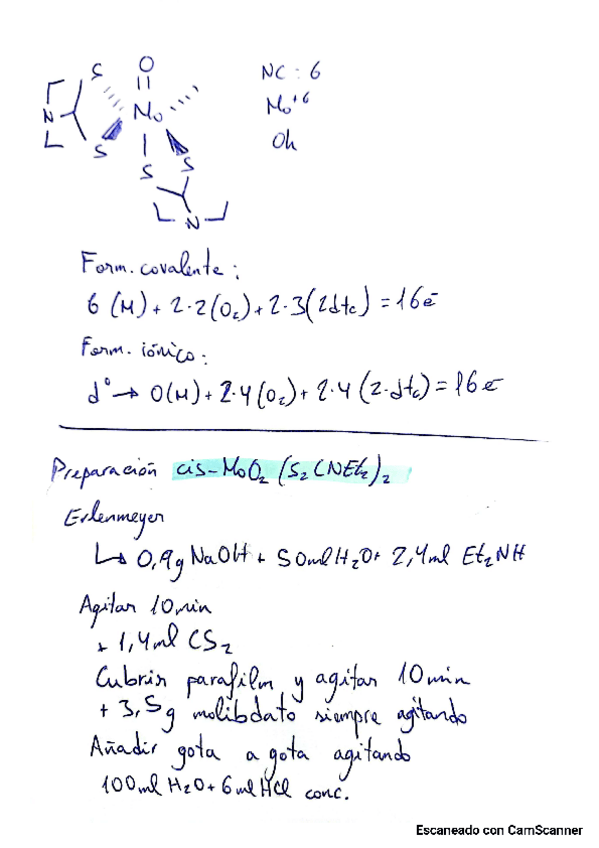 O
S
NC : 6
N
Mo
Mo+6
S
S
S
Oh
N
Form. covalente:
6 (M) + 2·2(O2) + 2·3(2dtc) = 16 e-
Form. iónico:
d° → O(M) + 2·4(O2) + 2·4 (2·dtc) = 16 e-
Preparación cis-MoO2 (S2CNEt2)2
Erlenmeyer
↳ 0,9g NaOH + 50ml H2O + 2,4ml Et2NH
Agitar 10min
+ 1,4ml CS2
Cubrir parafilm y agitar 10min
+ 3,5g molibdato siempre agitando
Añadir gota a gota agitando
100ml H2O + 6ml HCl conc.
Escaneado con CamScanner